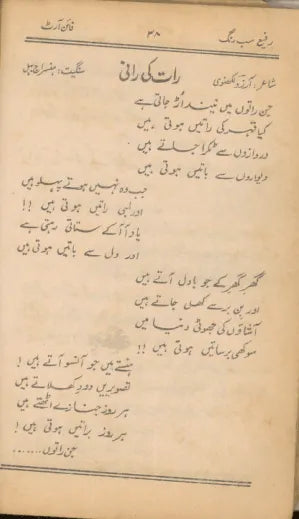 رفیع سب رنگ ۳۸ فائن آرٹ
رات کی رانی
شاعر: آرزو لکھنوی سنگیت: ہنسراج بہل
جن راتوں میں نیند اُڑ جاتی ہے
کیا قہر کی راتیں ہوتی ہیں
دروازوں سے ٹکرا جاتے ہیں
دیواروں سے باتیں ہوتی ہیں
جب وہ نہیں ہوتے پہلو میں
اور لمبی راتیں ہوتی ہیں !!
یاد آ آ کے ستاتی رہتی ہے
اور دل سے باتیں ہوتی ہیں
گھر گھر کے جو بادل آتے ہیں
اور بن برسے کھل جاتے ہیں
آشاؤں کی جھوٹی دنیا میں
سوکھی برساتیں ہوتی ہیں !!
ہنستے ہیں جو آنسو آتے ہیں !
تصویریں دو دکھلاتے ہیں
ہر روز جنازے اٹھتے ہیں
ہر روز براتیں ہوتی ہیں !
جن راتوں........